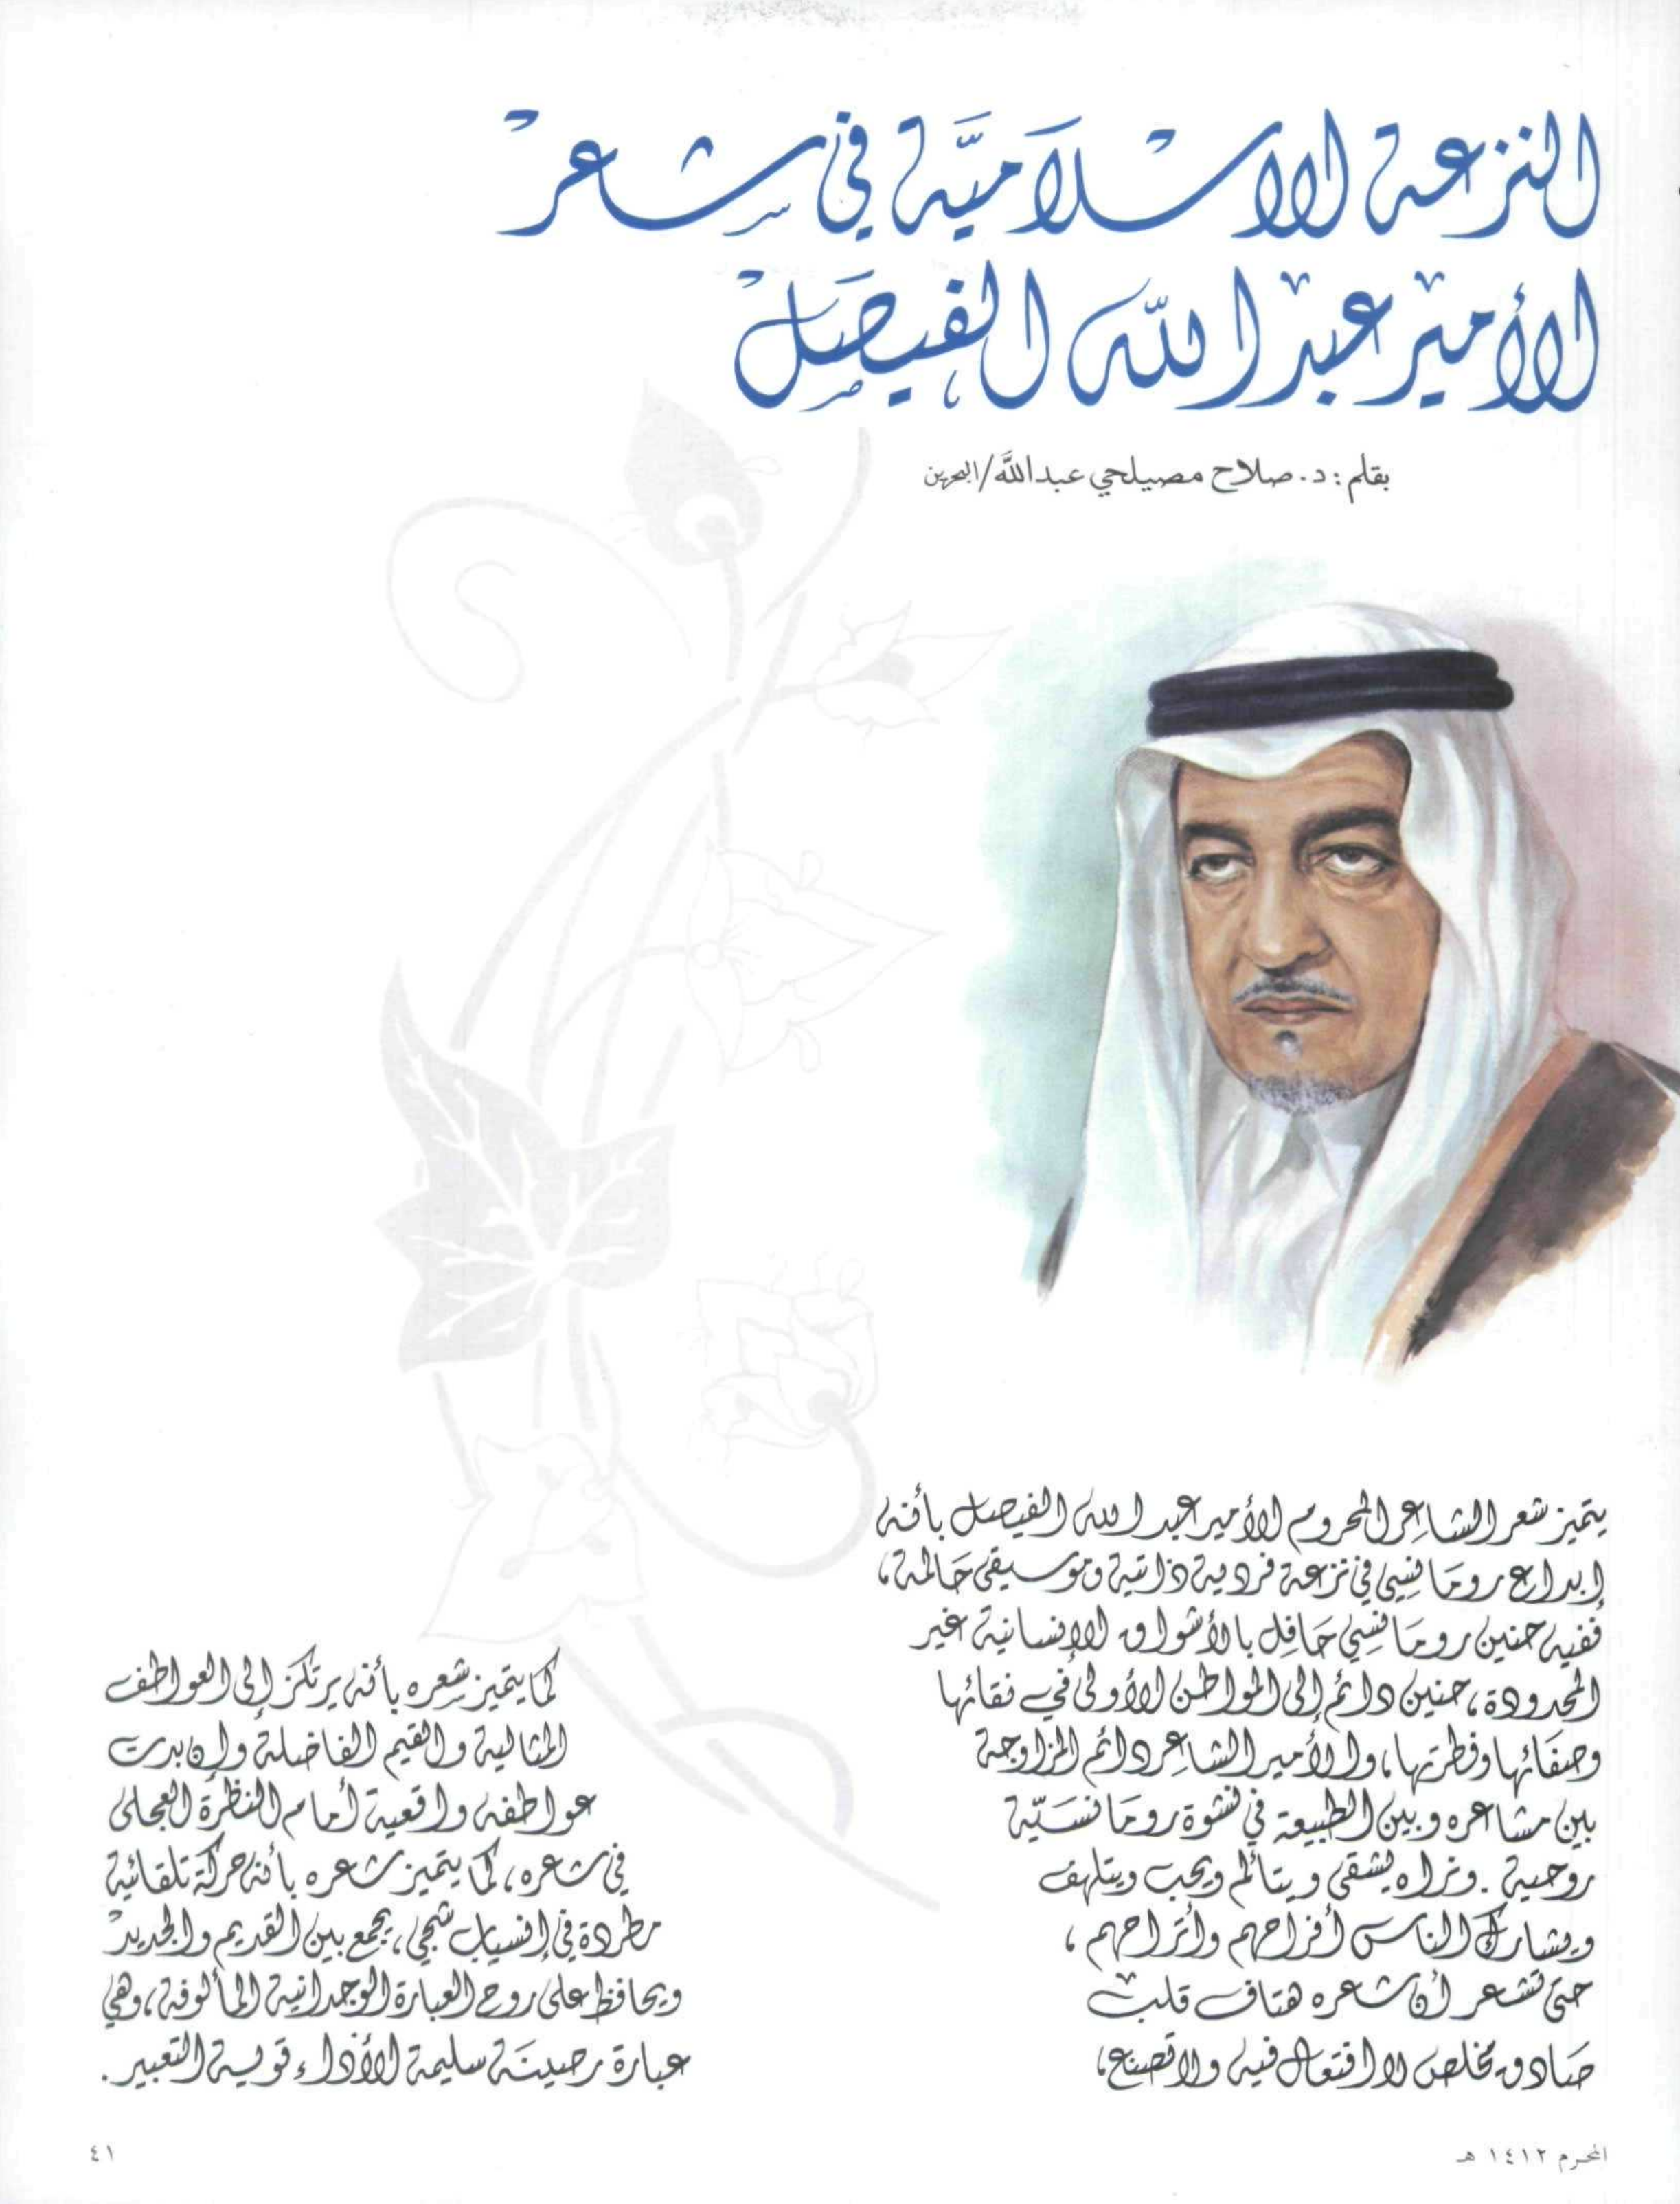 النزعة الاسلامية في شعر
الأمير عبد الله الفيصل
بقلم : د. صلاح مصيلحي عبد الله / البحرين
يتميز شعر الشاعر المحروم الأمير عبد الله الفيصل بأنه
إبداع رومانسي في نزعة فردية ذاتية وموسيقى حالمة،
ففيه حنين رومانسي حافل بالأشواق الانسانية غير
المحدودة، حنين دائم إلى المواطن الأولى في نقائها
وصفائها وفطرتها، والأمير الشاعر دائم المزاوجة
بين مشاعره وبين الطبيعة في نشوة رومانسيّة
روحية. ونراه يشقى ويتألم ويحب ويتلهف
ويشارك الناس أفراحهم وأتراحهم،
حتى تشعر أن شعره هتاف قلب
صادق مخلص لا افتعال فيه ولا تصنع،
كما يتميز شعره بأنه يرتكز إلى العواطف
المثالية والقيم الفاضلة وإن بدت
عواطفه واقعية أمام النظرة العجلى
في شعره، كما يتميز شعره بأنه حركة تلقائية
مطردة في إنسياب شجي، يجمع بين القديم والجديد
ويحافظ على روح العبارة الوجدانية المألوفة، وهي
عبارة رصينة سليمة الأداء قوية التعبير.
المحرم ١٤١٢ هـ
٤١